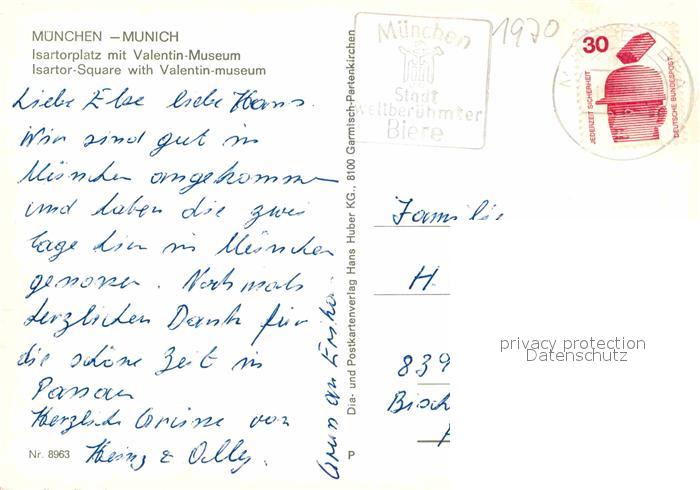 MÜNCHEN – MUNICH
Isartorplatz mit Valentin-Museum
Isartor-Square with Valentin-museum
Liebe Else liebe Hans.
Wir sind gut in
München angekommen
und haben die zwei
Tage hier in München
genossen. Nochmals
herzlichen Dank für
die schöne Zeit in
Passau
Herzliche Grüsse von
Heinz & Olly.
Nr. 8963
Gruss an Erika
Dia- und Postkartenverlag Hans Huber KG., 8100 Garmisch-Partenkirchen
P
München
Stadt
weltberühmter
Biere
1970
30
JEDERZEIT SICHERHEIT
DEUTSCHE BUNDESPOST
Familie
H
839
Bisch
privacy protection
Datenschutz